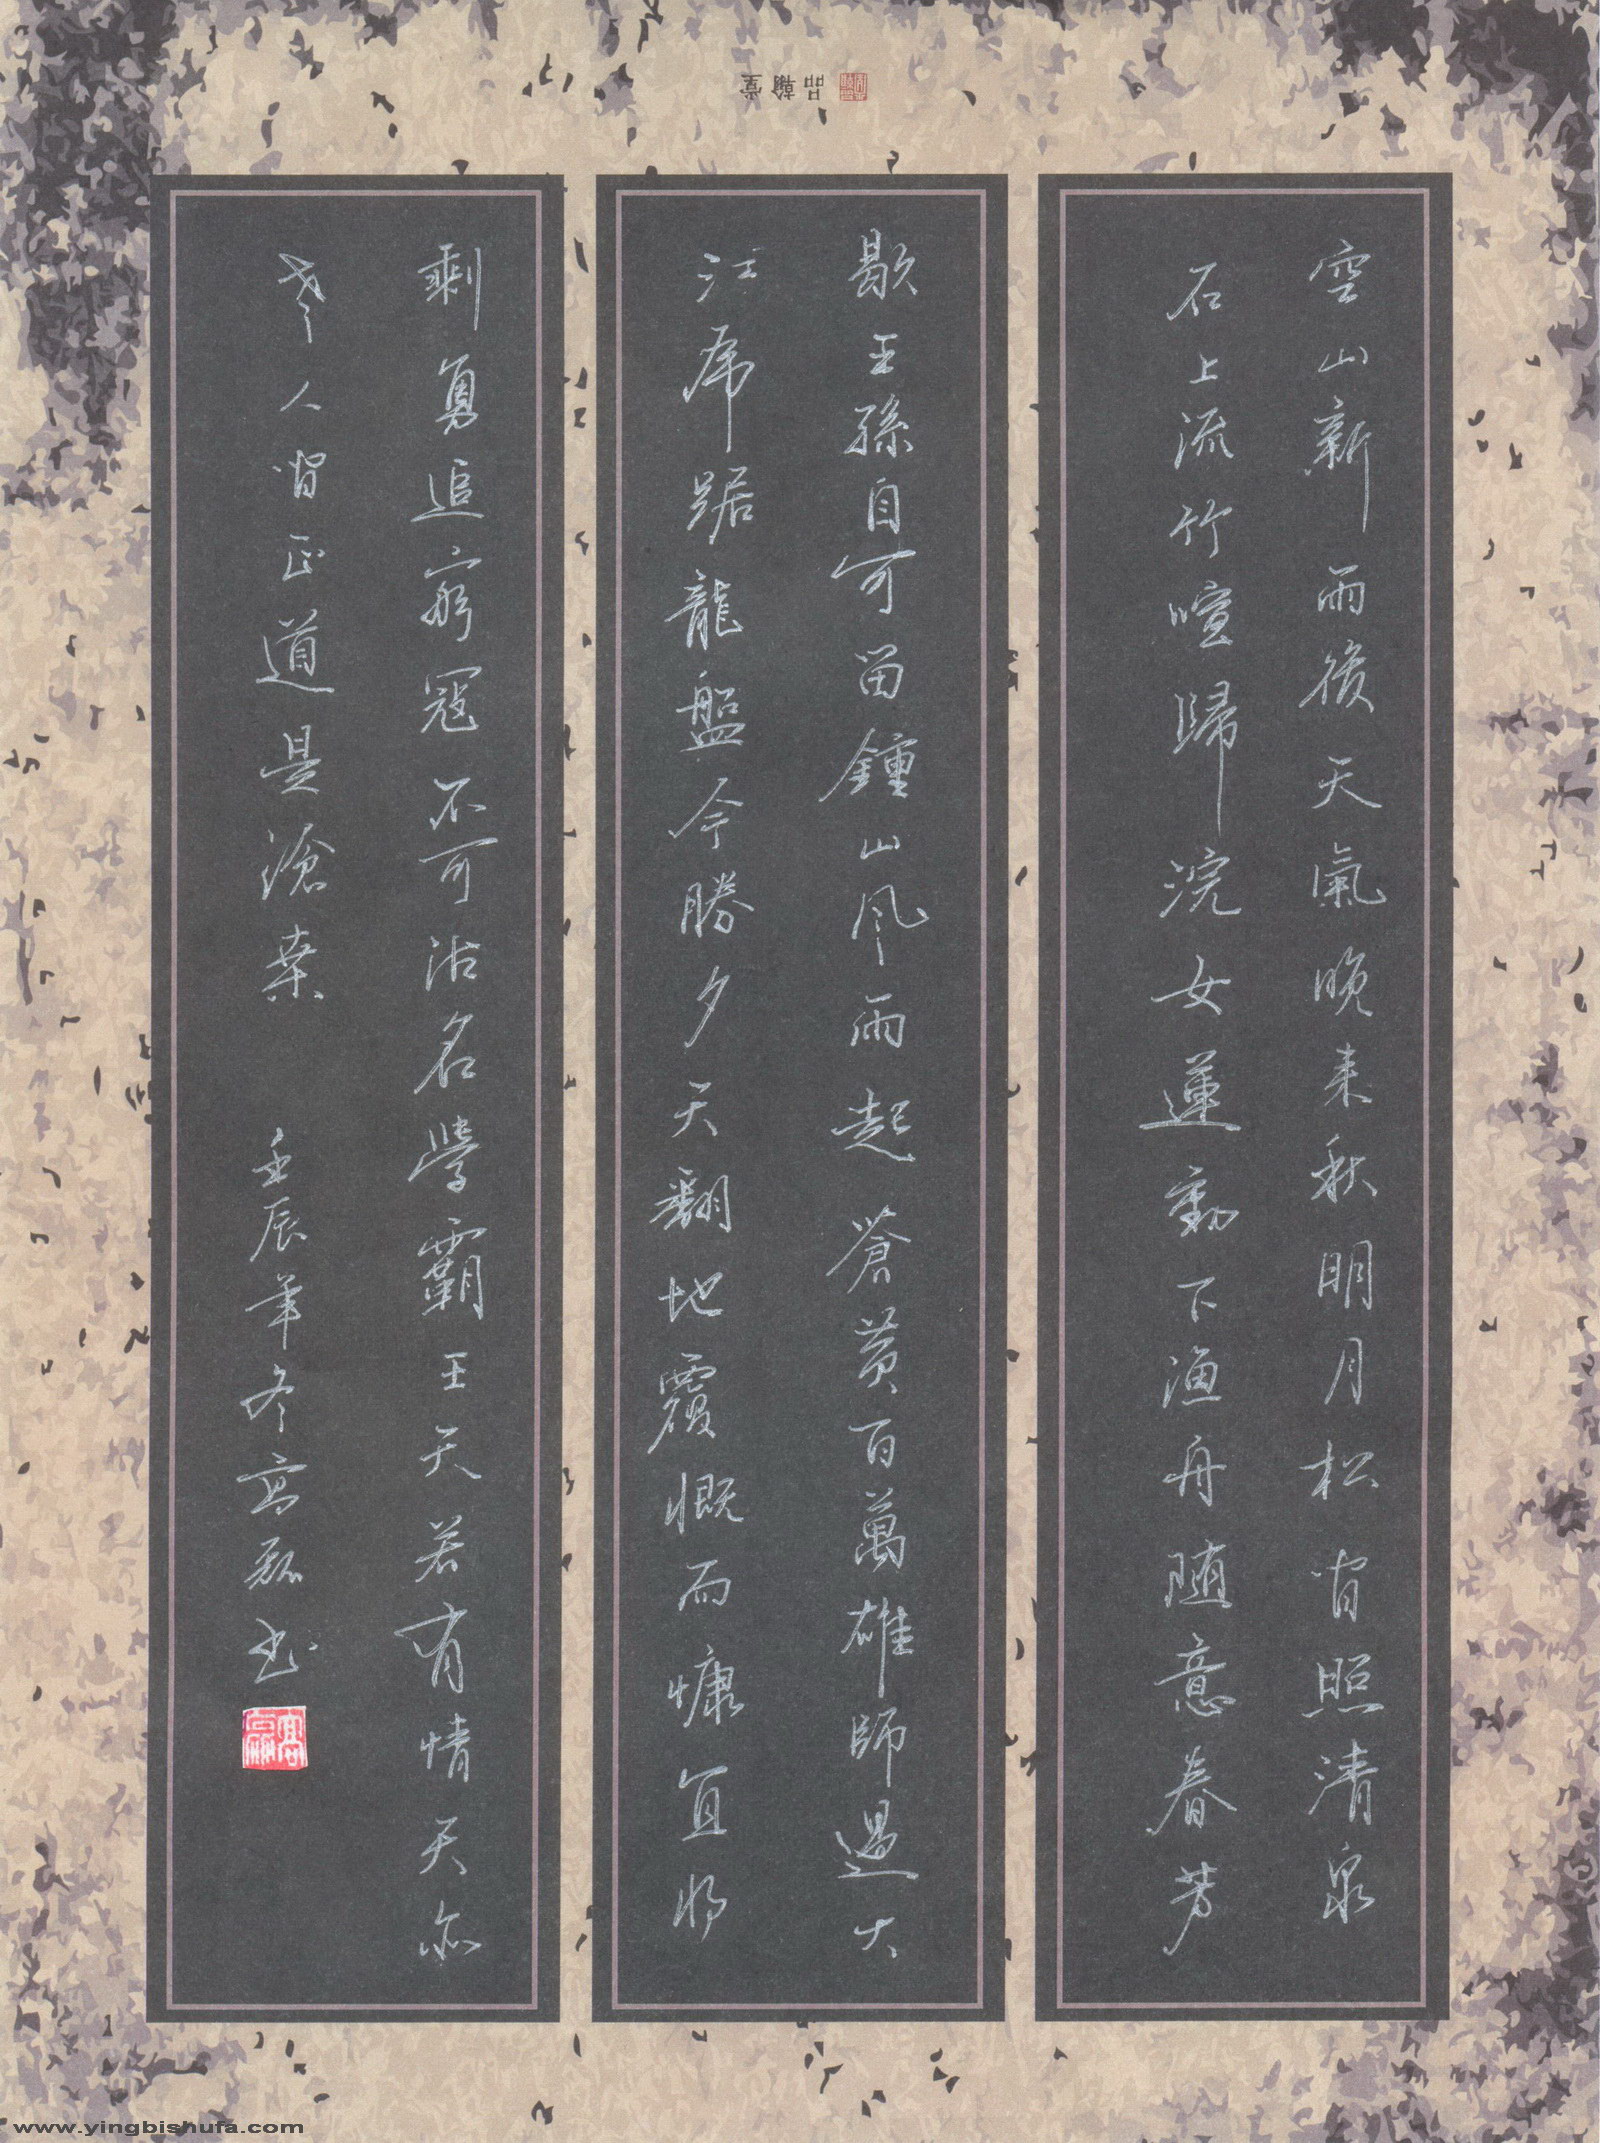 空山新雨後天氣晚来秋明月松間照清泉
石上流竹喧歸浣女蓮動下渔舟随意春芳
歇王孫自可留鍾山风雨起蒼黄百萬雄師過大
江虎踞龍盤今勝夕天翻地覆慨而慷宜将
剩勇追窮寇不可沽名學霸王天若有情天亦
老人間正道是滄桒
壬辰年冬高磊书
www.yingbishufa.com